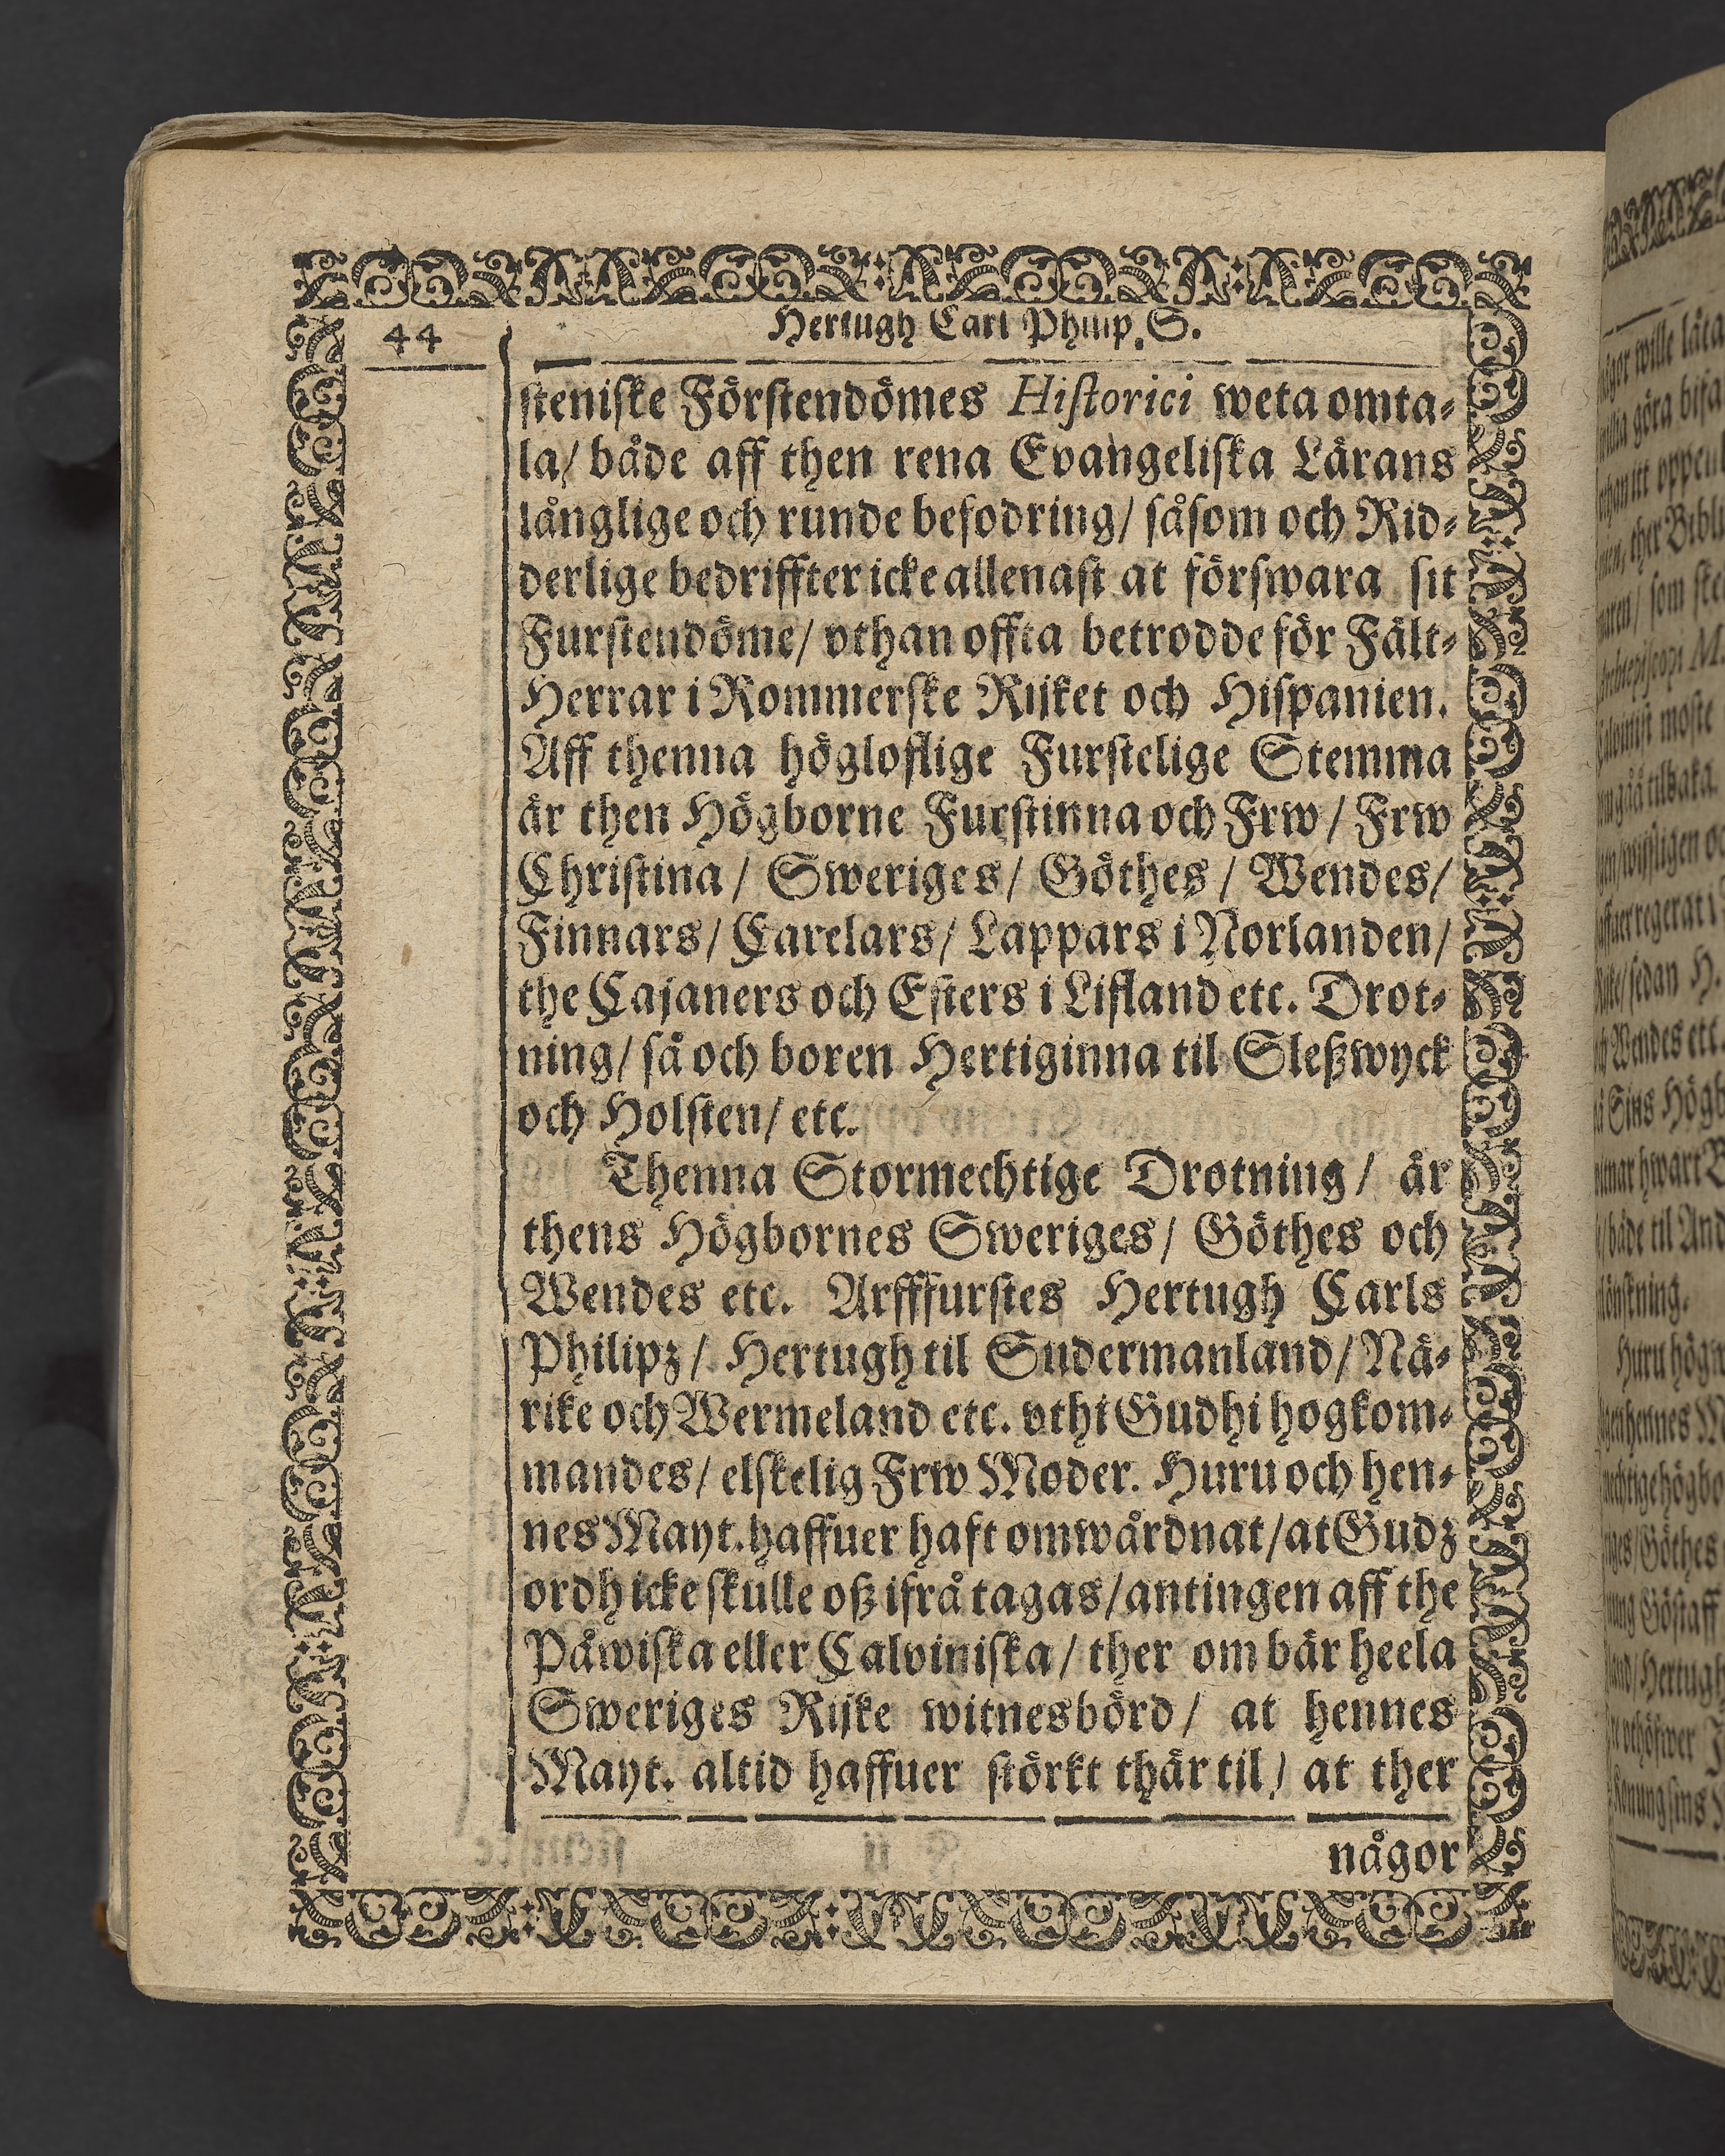 44
Hertugh Carl Philip. S.
steniſke Förſtendömes Hiſtorici weta omta⸗
la/ både aff then rena Evangeliſka Lärans
långlige och runde befodring/ ſåſom och Rid⸗
derlige bedriffter icke allenaſt at förſwara ſit
Furſtendöme/ vthan offta betrodde för Fält⸗
Herrar i Rommerſke Rijket och Hiſpanien.
Aff thenna högloflige Furſtelige Stemma
är then Högborne Furſtinna och Frw / Frw
Chriſtina / Sweriges/ Göthes / Wendes/
Finnars/ Carelars/ Lappars i Norlanden/
the Cajaners och Eſters i Lifland etc. Drot⸗
ning/ ſå och boren Hertiginna til Sleßwyck
och Holſten/ etc.
Thenna Stormechtige Drotning/ är
thens Högbornes Sweriges/ Göthes och
Wendes etc. Arfffurſtes Hertugh Carls
Philipz/ Hertugh til Sudermanland/ Nä⸗
rike och Wermeland etc. vthi Gudhi hogkom⸗
mandes/ elſkelig Frw Moder. Huru och hen⸗
nes Mayt. haffuer haft omwårdnat/ at Gudz
ordh icke ſkulle oß ifrå tagas/ antingen aff the
Påwiſka eller Calviniſka/ ther om bär heela
Sweriges Rijke witnesbörd/ at hennes
Mayt. altid haffuer ſtörkt thär til/ at ther
någor